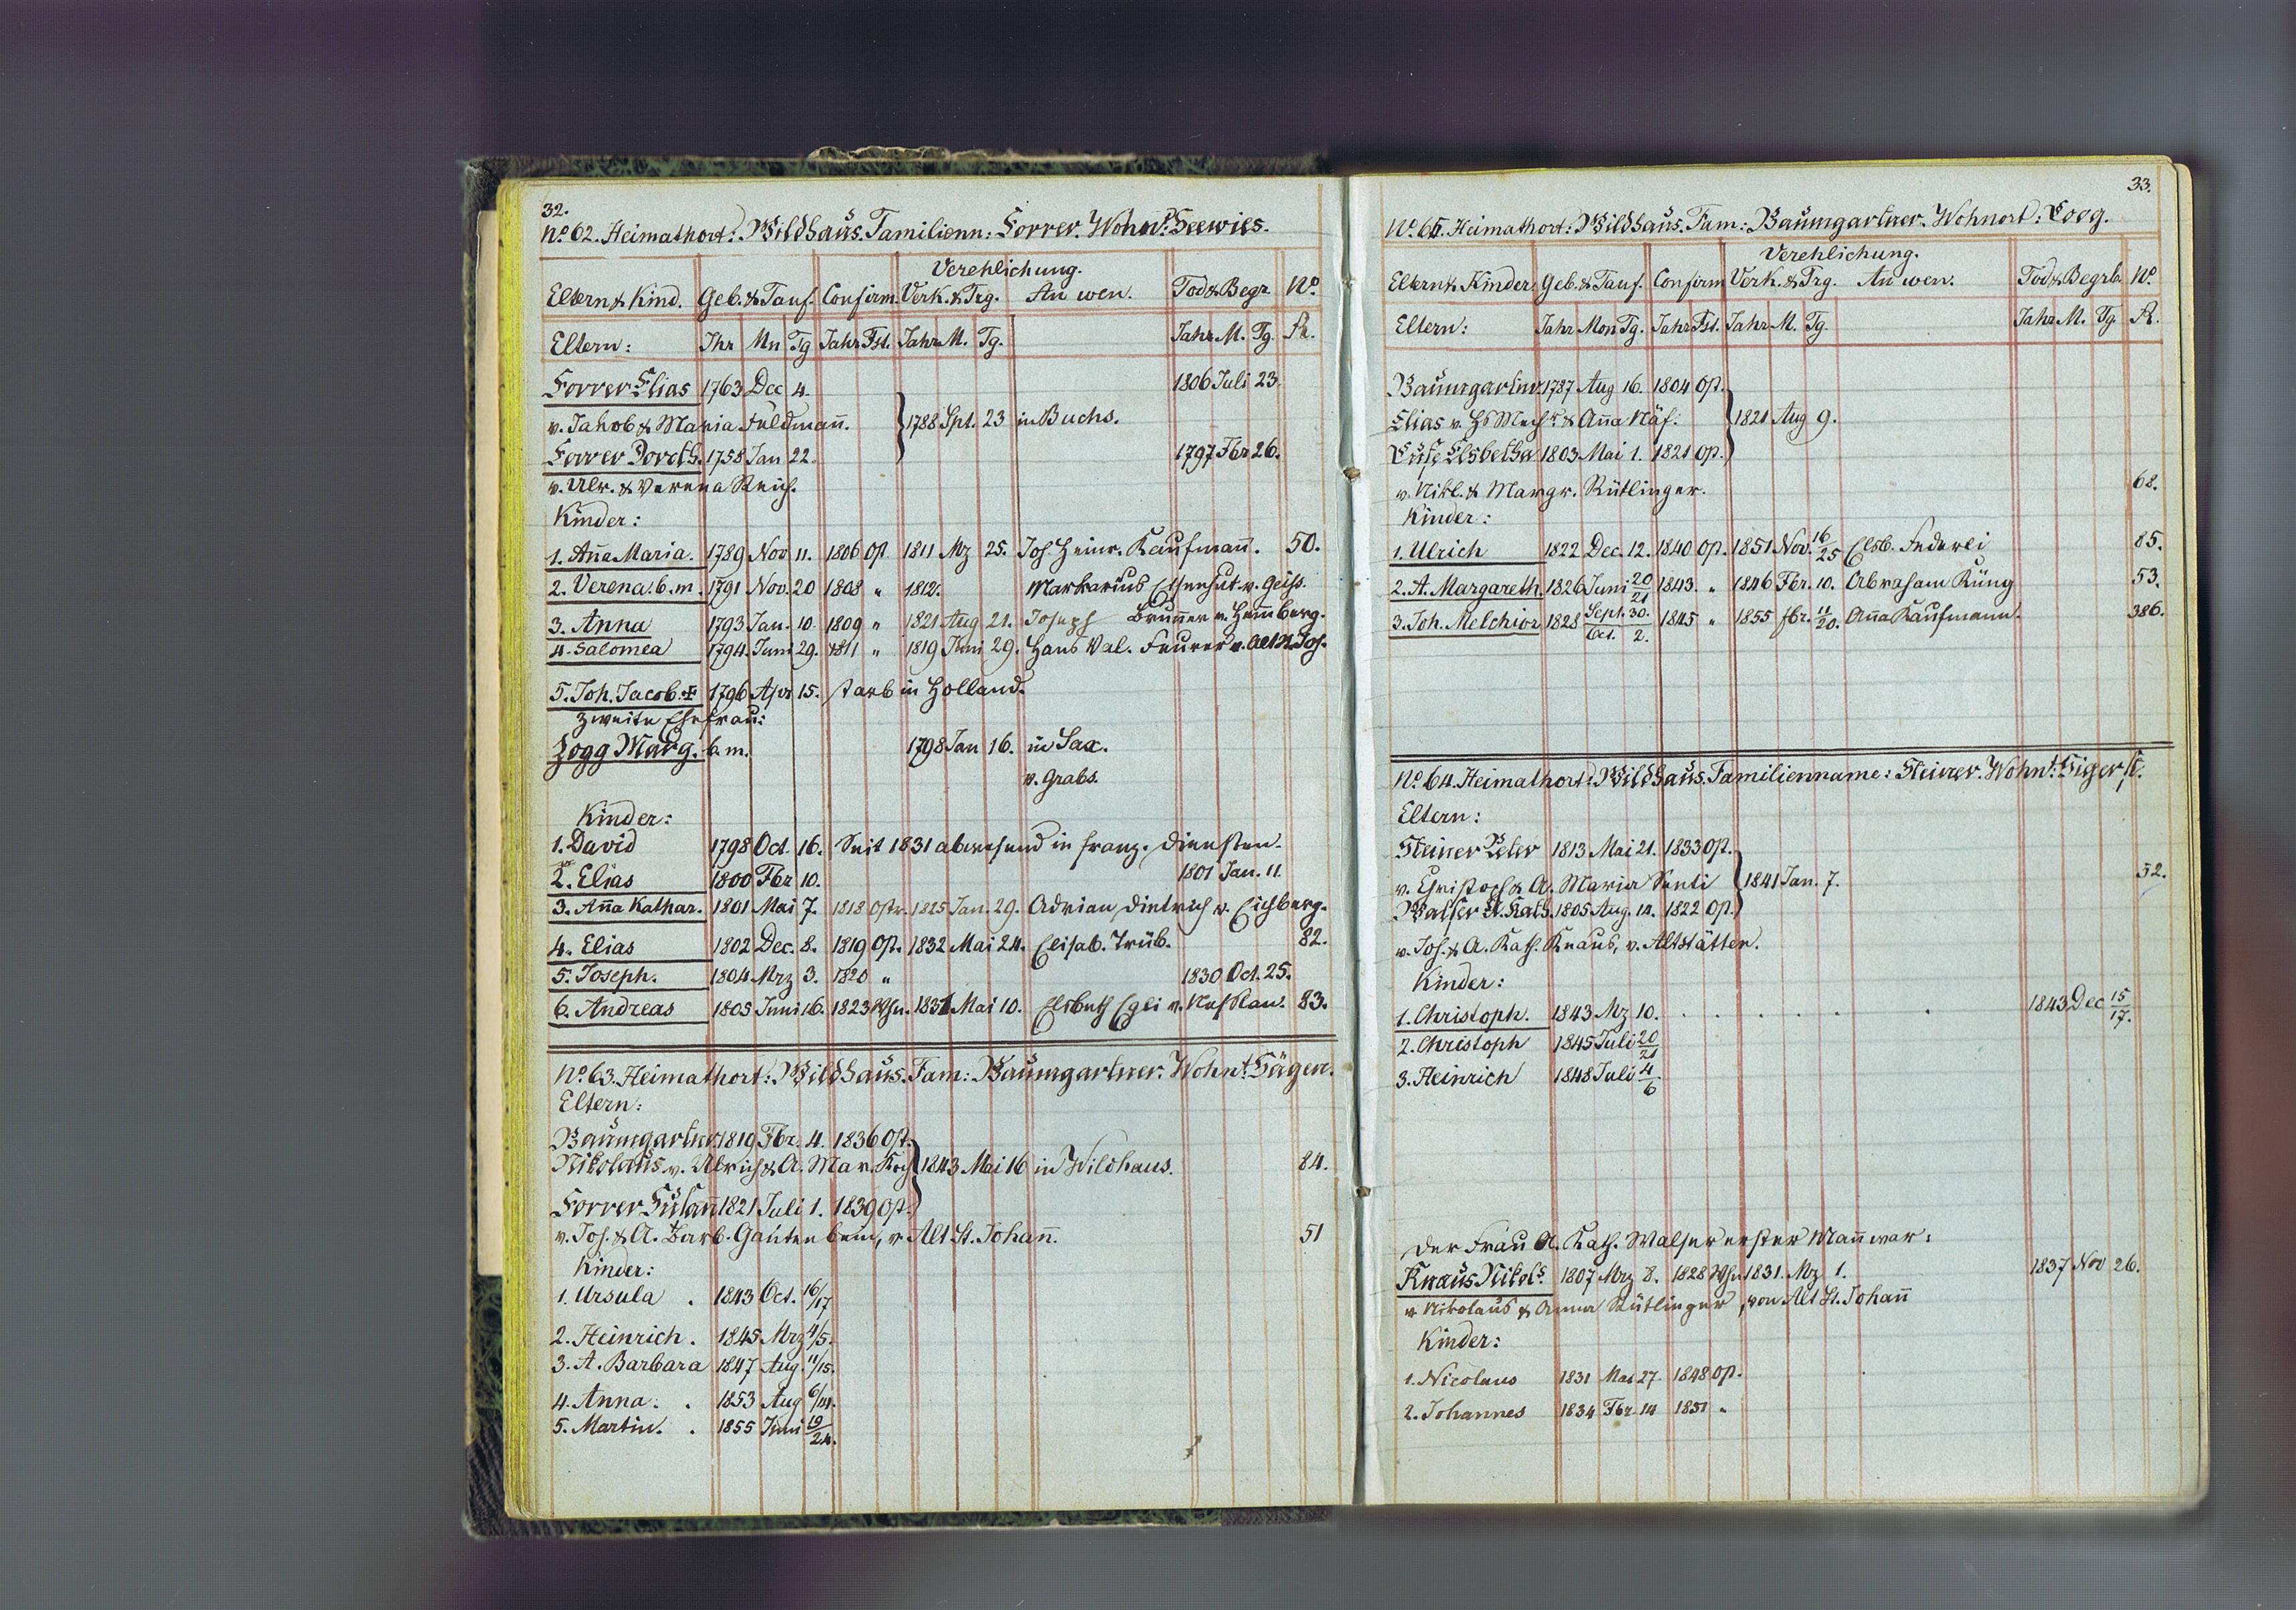 32.
No. 62. Heimathort: Wildhaus. Familienn: Forrer. Wohnt: Seewies.
Verehlichung.
Eltern & Kind. Geb. & Tauf. Confirm. Verk. & Trg. An wen. Tod & Begr. No.
Eltern: Jhr Mn Tg Jahr Fst. Jahr M. Tg. Jahr M. Tg. R.
Forrer Elias 1763 Dec 4. 1806 Juli 23.
v. Jakob & Maria Feldmañ. 1788 Spt. 23 in Buchs.
Forrer Doroth. 1758 Jan 22. 1797 Fbr 26.
v. Ulr. & Verena Reich.
Kinder:
1. Aña Maria. 1789 Nov 11. 1806 Ost 1811 Mz 25. Joh Heinr. Kaufmañ. 50.
2. Verena. b. m. 1791 Nov. 20 1808 " 1812. Markarius Eisenhut v. Geiss.
3. Anna 1793 Jan. 10. 1809 " 1821 Aug 21. Joseph Bruñer v. Hemberg.
4. Salomea 1794. Juni 29. 1811 " 1819 Juni 29. Hans Val. Feurer v. Alt St. Joh.
5. Joh. Jacob. + 1796 Apr 15. starb in Holland.
Zweite Ehefrau:
Zogg Marg. b. m. 1798 Jan 16. in Sax.
v. Grabs.
Kinder:
1. David 1798 Oct. 16. Seit 1831 abwesend in franz. Diensten.
2. Elias 1800 Fbr 10. 1801 Jan. 11.
3. Aña Kathar. 1801 Mai 7. 1818 Ostr. 1825 Jan. 29. Adrian Dietrich v. Eichberg.
4. Elias 1802 Dec. 8. 1819 Ost. 1832 Mai 24. Elisab. Trüb. 82.
5. Joseph. 1804 Mrz 3. 1820 " 1830 Oct. 25.
6. Andreas 1805 Juni 16. 1823 Whn. 1831 Mai 10. Elsbeth Egli v. Nesslau. 83.
No. 63. Heimathort: Wildhaus. Fam: Baumgartner. Wohnt: Sägen.
Eltern:
Baumgartner 1819 Fbr. 4. 1836 Ost.
Nikolaus v. Ulrich & A. Mar. Koch 1843 Mai 16 in Wildhaus. 84.
Forrer Susañ 1821 Juli 1. 1839 Ost.
v. Jos. & A. Barb. Gautenbein, v. Alt St. Johañ. 51
Kinder:
1. Ursula . 1843 Oct. 16/17
2. Heinrich . 1845 Mrz 4/5.
3. A. Barbara 1847 Aug. 11/15.
4. Anna. . 1853 Aug 6/14.
5. Martin. . 1855 Juni 19/24.
33.
No. 65. Heimathort: Wildhaus. Fam: Baumgartner. Wohnort: Loog.
Verehlichung.
Eltern & Kinder Geb. & Tauf. Confirm Verk. & Trg. An wen. Tod & Begrb. No.
Eltern: Jahr Mon Tg. Jahr Fst. Jahr M. Tg. Jahr M. Tg R.
Baumgartner 1787 Aug 16. 1804 Ost.
Elias v. Hs Mechr & Aña Näf. 1821 Aug 9.
Elsbetha 1803 Mai 1. 1821 Ost.
v. Nikl. & Margr. Rütlinger. 68.
Kinder:
1. Ulrich 1822 Dec. 12. 1840 Ost. 1851 Nov. 16/25 Elsb. Federli 85.
2. A. Margareth. 1826 Juni 20/21 1843. " 1846 Fbr. 10. Abraham Küng 53.
3. Joh. Melchior 1828 Sept. 30./Oct. 2. 1845 " 1855 fbr. 11/20. Aña Kaufmann. 386.
No. 64. Heimathort: Wildhaus. Familienname: Steiner. Wohnt:
Eltern:
Steiner Peter 1813 Mai 21. 1833 Ost.
v. Christoph & A. Maria Senti 1841 Jan. 7. 52.
Walser A. Kath. 1805 Aug. 14. 1822 Ost.
v. Jos. & A. Kath. Knaus, v. Altstätten.
Kinder:
1. Christoph. 1843 Mz 10. . . . . . . . 1843 Dec 15/17.
2. Christoph 1845 Juli 20/21
3. Heinrich 1848 Juli 4/6
Der Frau A. Kath. Walser erster Mañ war:
Knaus Nikols. 1807 Mrz 8. 1828 Whn 1831. Mz 1. 1837 Nov 26.
v. Nikolaus & Anna Rütlinger, von Alt St. Johañ
Kinder:
1. Nicolaus 1831 Mai 27. 1848 Ost.
2. Johannes 1834 Fbr 14 1851 "